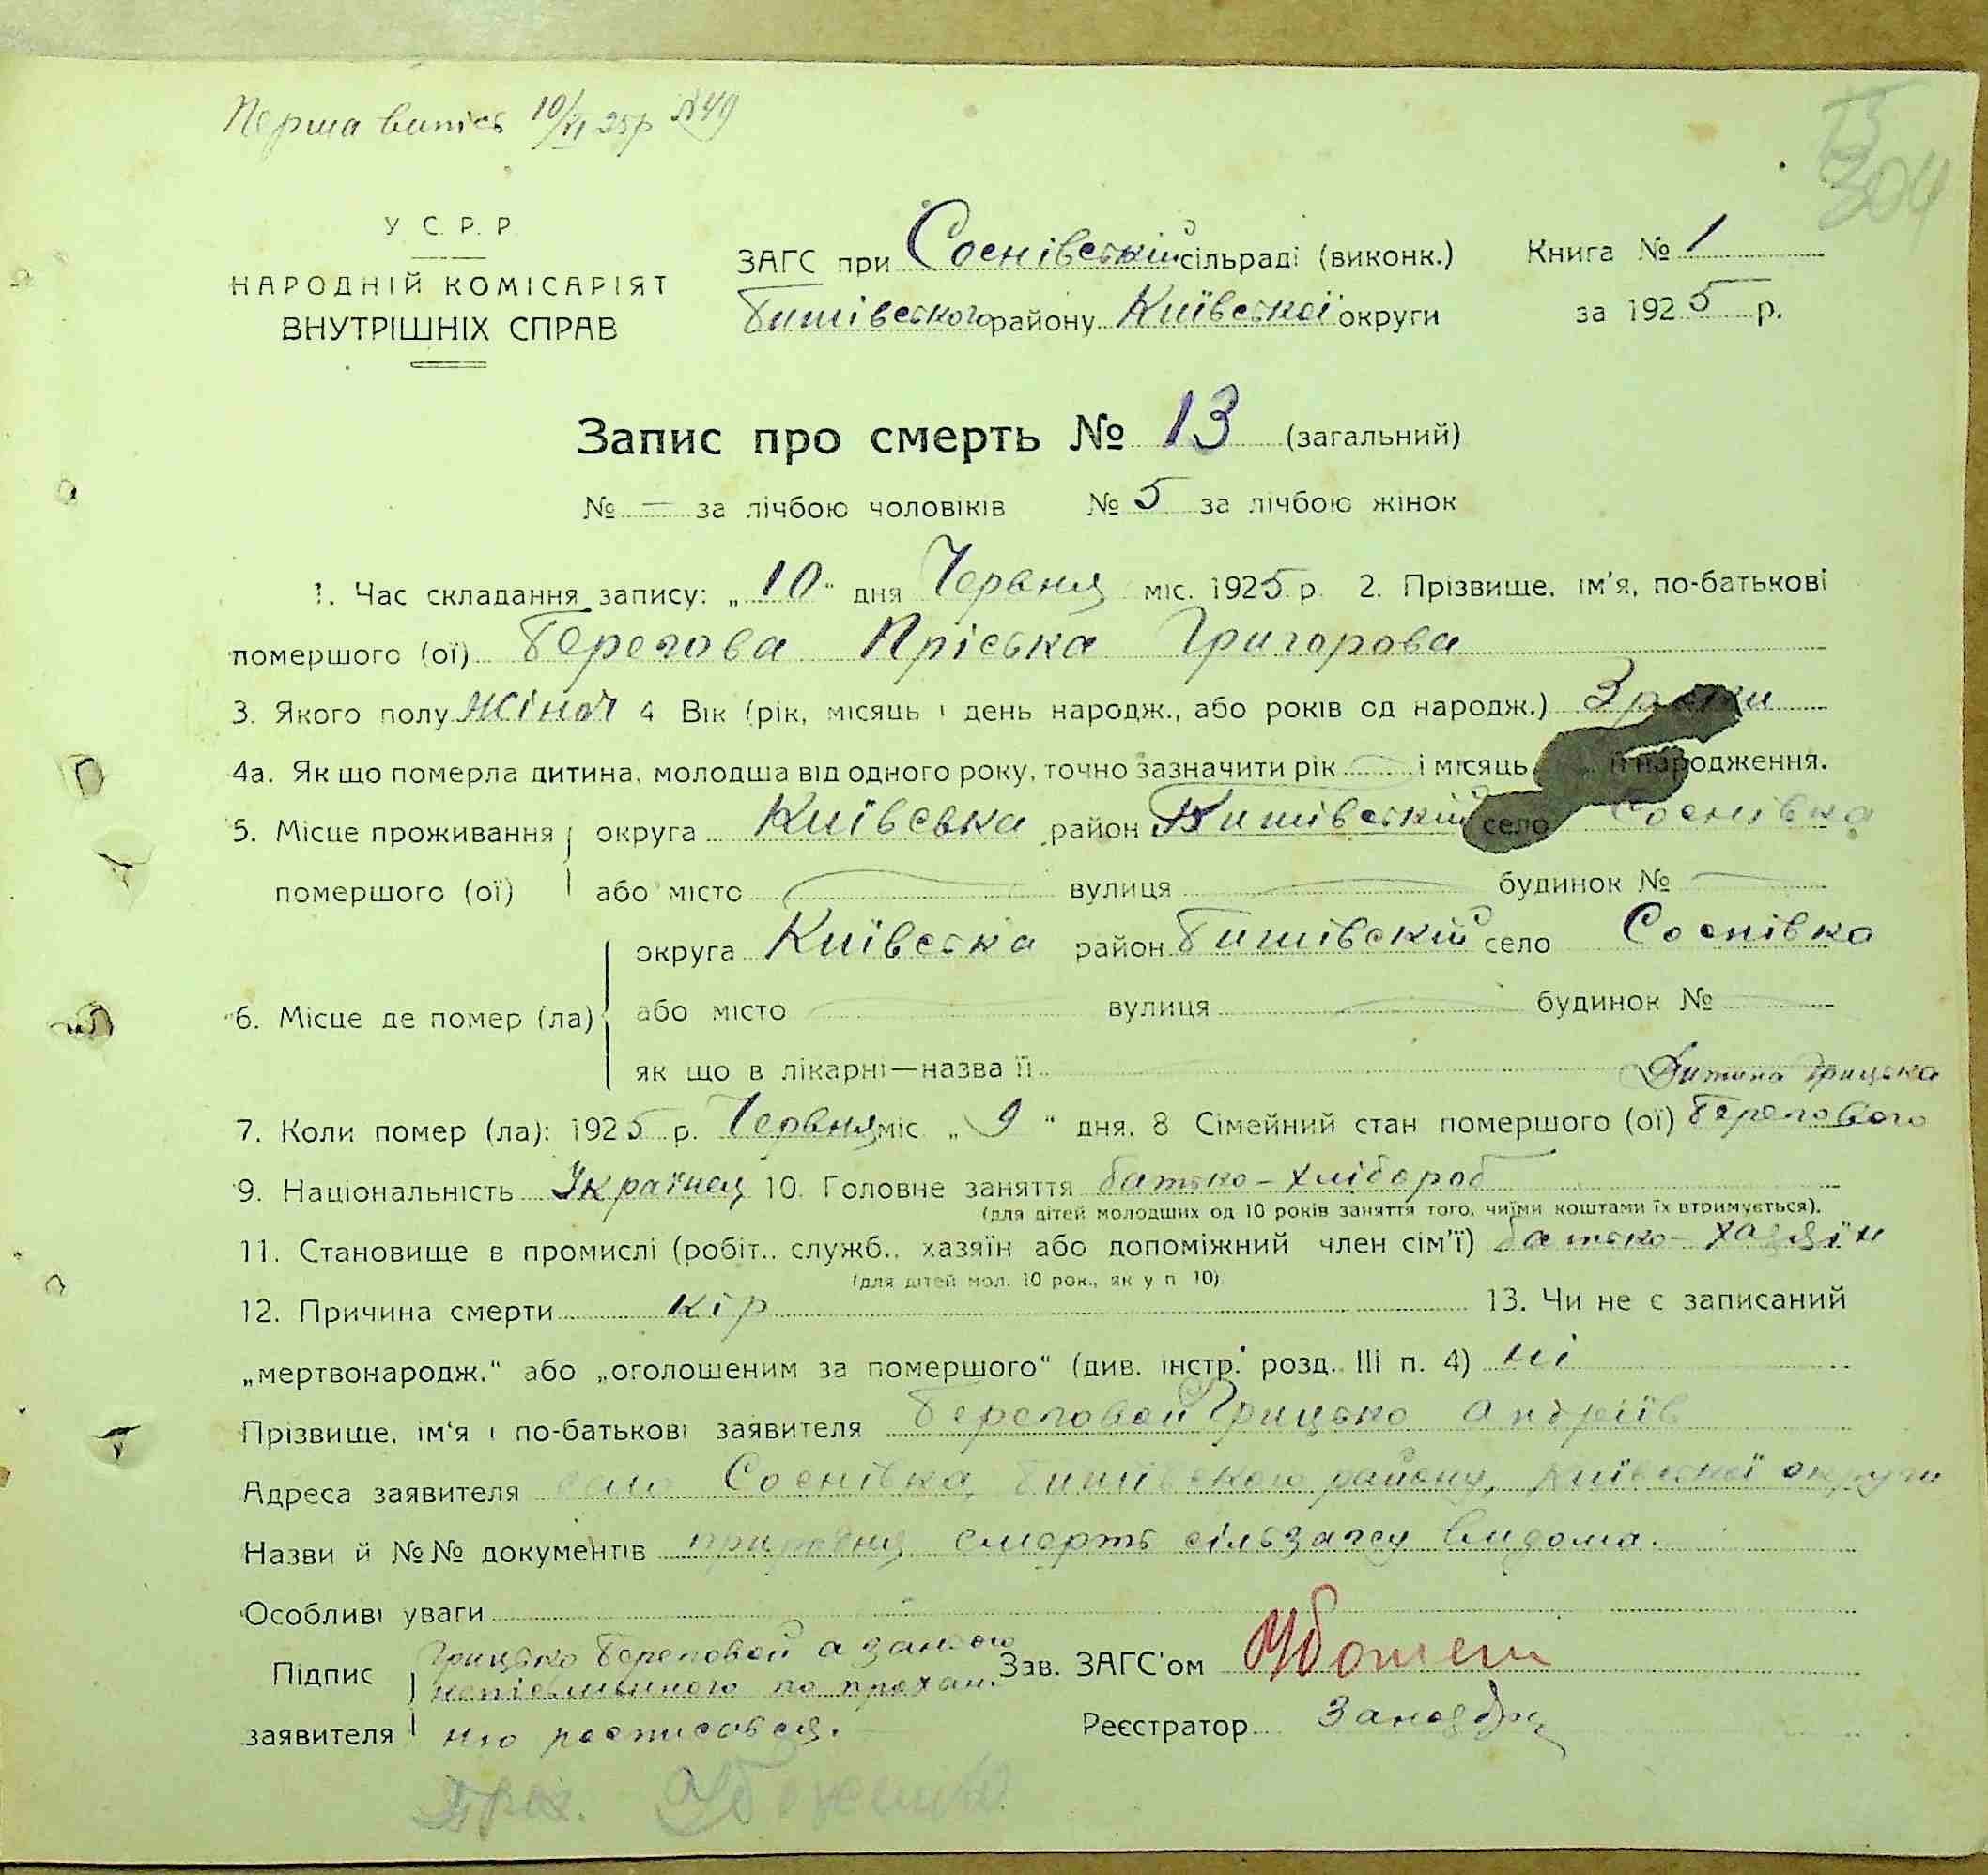 Перша випись 10/VI 25р №49
304
У. С. Р. Р.
НАРОДНІЙ КОМІСАРІЯТ
ВНУТРІШНІХ СПРАВ
ЗАГС при Соснівській сільраді (виконк.) Книга № 1
Бишівського району Київської округи за 1925 р.
Запис про смерть № 13 (загальний)
№ — за лічбою чоловіків № 5 за лічбою жінок
1. Час складання запису: „10“ дня Червня міс. 1925 р. 2. Прізвище, ім'я, по-батькові
помершого (ої) Берегова Пріська Григорова
3. Якого полу жіноч 4 Вік (рік, місяць і день народж., або років од народж.) 3 роки
4а. Як що померла дитина, молодша від одного року, точно зазначити рік — і місяць її народження.
5. Місце проживання округа Київська район Бишівський село Соснівка
помершого (ої) або місто — вулиця — будинок № —
округа Київська район Бишівский село Соснівка
6. Місце де помер (ла) або місто — вулиця — будинок № —
як що в лікарні—назва її —
Дитина Грицька
7. Коли помер (ла): 1925 р. Червня міс „9“ дня. 8 Сімейний стан помершого (ої) Берегового
9. Національність Українец 10. Головне заняття батько-хлібороб
(для дітей молодших од 10 років заняття того, чиїми коштами їх втримується).
11. Становище в промислі (робіт., служб., хазяїн або допоміжний член сім'ї) батько-хазяїн
(для дітей мол. 10 рок., як у п 10)
12. Причина смерти кір 13. Чи не є записаний
„мертвонародж.“ або „оголошеним за помершого“ (див. інстр. розд. III п. 4) ні
Прізвище, ім'я і по-батькові заявителя Береговой Грицько Андріїв
Адреса заявителя село Соснівка, Бишівського району, Київської округи
Назви й №№ документів смерть сільзагсу видома.
Особливі уваги
Підпис Грицько Береговой а за нього Зав. ЗАГС'ом
неписьменого по прохан.
заявителя ню росписався. Реєстратор